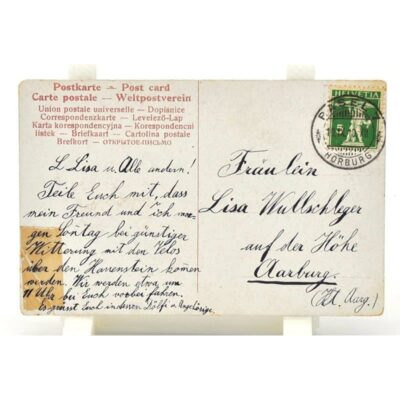 Postkarte — Post card
Carte postale — Weltpostverein
Union postale universelle — Dopisnice
Correspondenzkarte — Levelező-Lap
Karta korespondencyjna — Korespondenčni
listek — Briefkaart — Cartolina postale
Brefkort — ОТКРЫТОЕ ПИСЬМО
HELVETIA
5
ROHRBURG
L Lisa u. Alle andern!
Teile Euch mit, dass
mein Freund und ich mor-
gen Sontag bei günstiger
Witterung mit den Velos
über den Hauenstein kommen
werden. Wir werden etwa um
11 Uhr bei Euch vorbei fahren.
Es grüsst Euch indessen Dölfi u. Angehörige
Fräulein
Lisa Wullschleger
auf der Höhe
Aarburg.
(Kt. Aarg.)